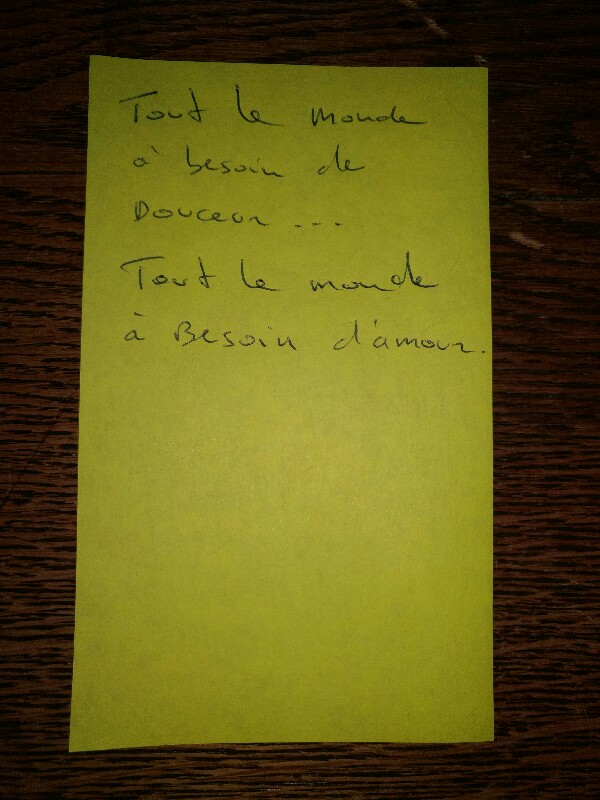 Tout le monde
à besoin de
Douceur ...
Tout le monde
à Besoin d'amour.